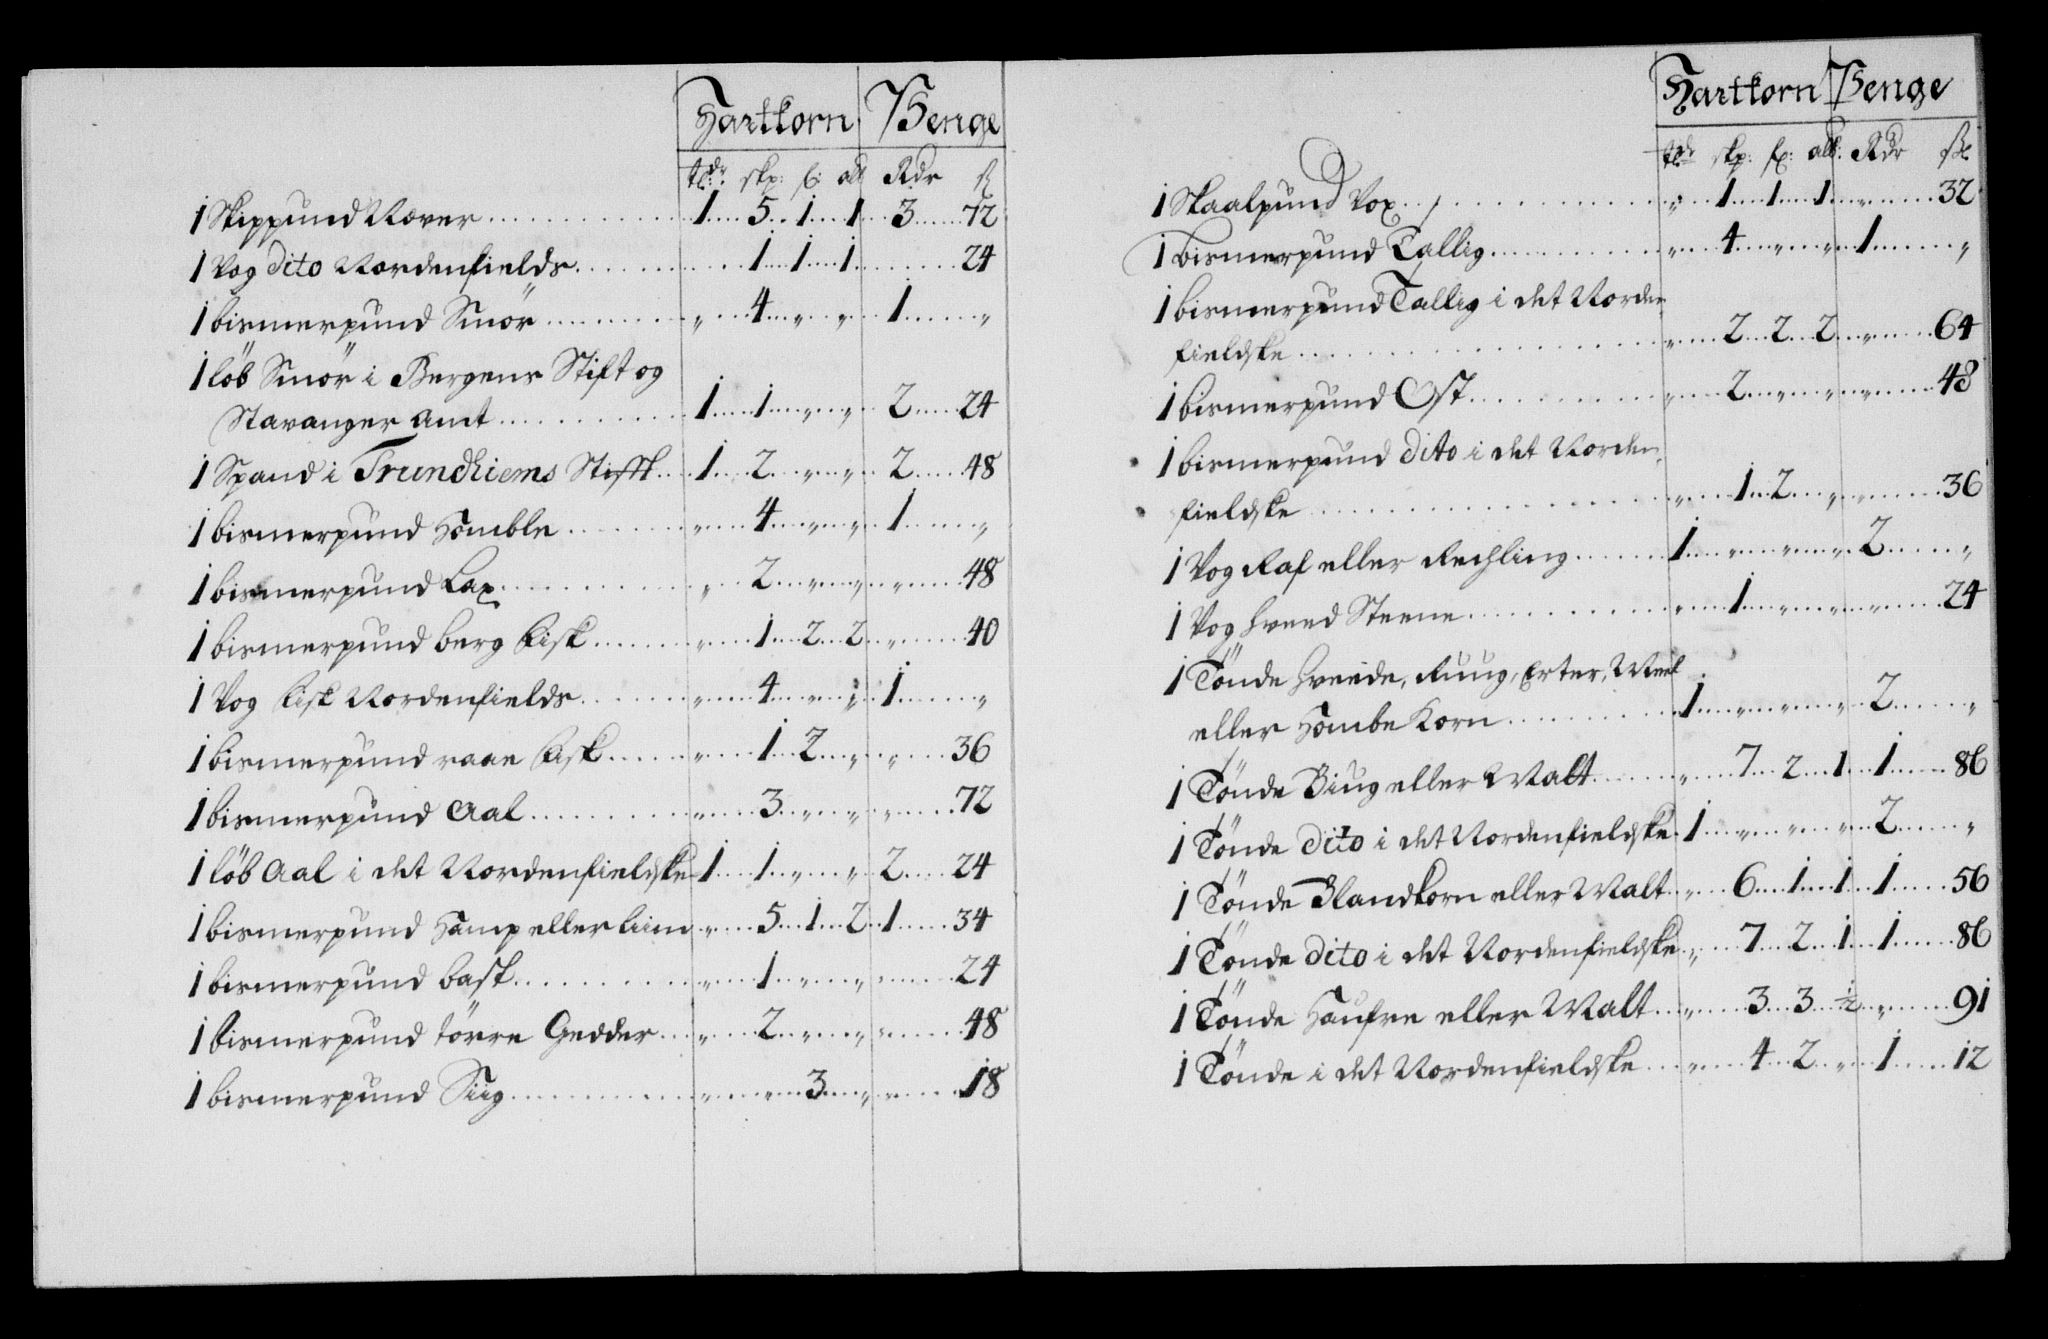 Hartkorn Penge
tdr: skp: f: alb Rdr ß
1 Skippund Næver 1 5 1 1 3 72
1 Vog dito Nordenfields 1 1 1 24
1 bismerpund Smör „ 4 „ „ 1 „
1 löb Smör i Bergens Stift og
Stavanger Amt 1 1 „ „ 2 24
1 Spand i Trundhiems Stifft 1 2 „ „ 2 48
1 bismerpund Homble „ 4 „ „ 1 „
1 bismerpund Lax „ 2 „ „ „ 48
1 bismerpund berg fisk „ 1 2 2 „ 40
1 Vog fisk Nordenfields „ 4 „ „ 1 „
1 bismerpund raae fisk „ 1 2 „ „ 36
1 bismerpund Aal „ 3 „ „ „ 72
1 löb Aal i det Nordenfieldske 1 1 „ „ 2 24
1 bismerpund Hamp eller Liin „ 5 1 2 1 34
1 bismerpund bast „ 1 „ „ „ 24
1 bismerpund törre Gedder „ 2 „ „ „ 48
1 bismerpund Siig „ „ 3 „ „ 18
Hartkorn Penge
tdr skp: f: alb: Rdr ßl
1 Skaalpund Vox „ 1 1 1 „ 32
1 bismerpund Tallig „ 4 „ „ 1 „
1 bismerpund Tallig i det Norden
fieldske „ 2 2 2 „ 64
1 bismerpund Ost „ 2 „ „ „ 48
1 bismerpund dito i det Norden
fieldske „ 1 2 „ „ 36
1 Vog Raf eller Rechling 1 „ „ „ 2 „
1 Vog hveed Steene „ 1 „ „ „ 24
1 Tönde hveede, Ruug, Erter, Meel
eller Hombe Korn 1 „ „ „ 2 „
1 Tönde Biug eller Malt „ 7 2 1 1 86
1 Tönde dito i det Nordenfieldske 1 „ „ „ 2 „
1 Tönde Blandkorn eller Malt „ 6 1 1 1 56
1 Tönde dito i det Nordenfieldske „ 7 2 1 1 86
1 Tönde Haufre eller Malt „ 3 3 ½ „ 91
1 Tönde i det Nordenfieldske „ 4 2 „ 1 12